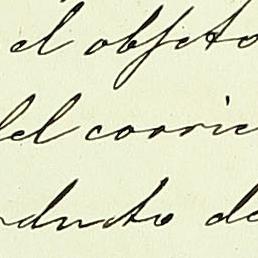 el objeto
del corrie
ducto de